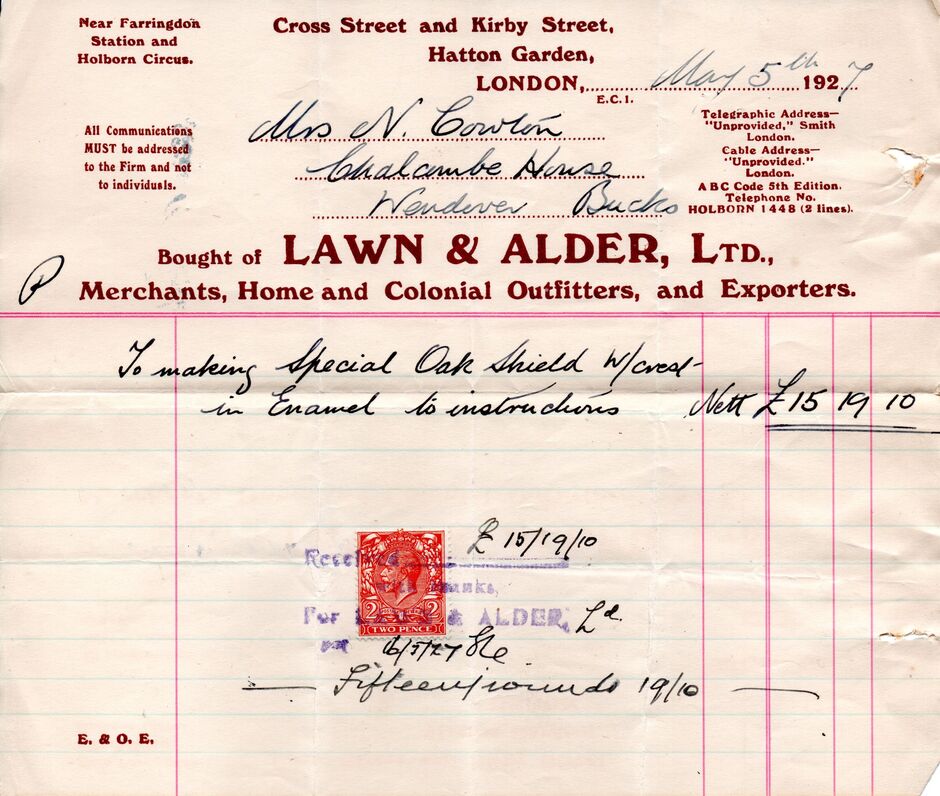 Near Farringdon
Station and
Holborn Circus.
Cross Street and Kirby Street,
Hatton Garden,
LONDON, May 5th 1927
E.C.1.
All Communications
MUST be addressed
to the Firm and not
to individuals.
Mrs N. Cowton
Chalcombe House
Wendover Bucks
Telegraphic Address—
"Unprovided," Smith
London.
Cable Address—
"Unprovided."
London.
A B C Code 5th Edition.
Telephone No.
HOLBORN 1448 (2 lines).
Bought of LAWN & ALDER, LTD.,
Merchants, Home and Colonial Outfitters, and Exporters.
To making Special Oak Shield W/crest
in Enamel to instructions Nett £15 19 10
£15/19/10
Received
thanks,
For LAWN & ALDER, Ld.
2 2
TWO PENCE
6/5/27
Fifteen pounds 19/10
E. & O. E.